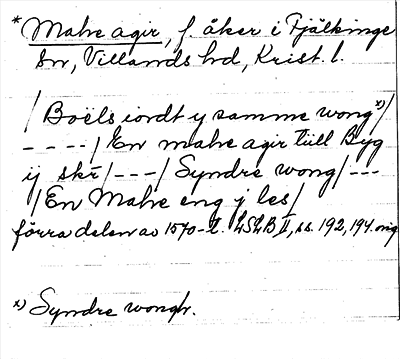 * Mahre agir, f. åker i Fjälkinge
sn, Villands hd, Krist. l.
/ Boëls iordt y samme wong *) /
- - - - / En mahre agir tiill Byg
ij skr̄ / - - - / Syndre wong / - - -
/ En Mahre eng j les /
förra delen av 1570-t. LSLB II, ss. 192, 194. orig
*) Syndre wong.